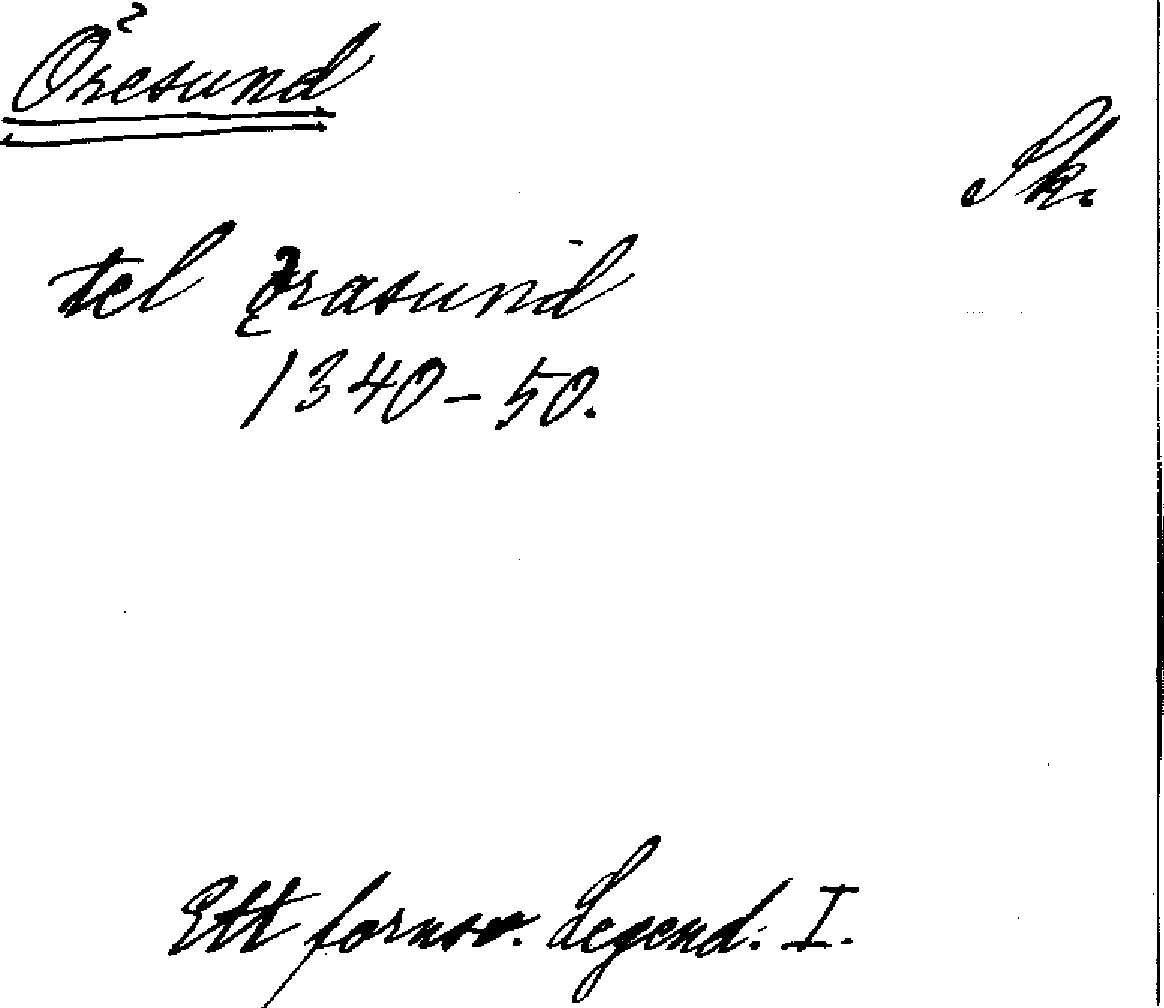 Öresund
Sk.
tel Ørasund
1340-50.
Ett fornsv. Legend: I.